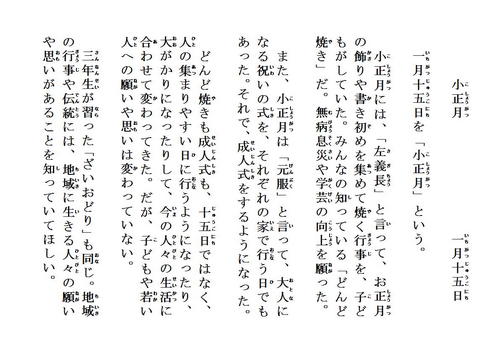 小正月　一月十五日
一月十五日を「小正月」という。
小正月には、「左義長」と言って、お正月
の飾りや書き初めを集めて焼く行事を、子ど
もがしていた。みんなの知っている「どんど
焼き」だ。無病息災や学芸の向上を願った。
また、小正月は「元服」と言って、大人に
なる祝いの式を、それぞれの家で行う日でも
あった。それで、成人式をするようになった。
どんど焼きも成人式も、十五日ではなく、
人の集まりやすい日に行うようになったり、
大がかりになったりして、今の人々の生活に
合わせて変わってきた。だが、子どもや若い
人への願いや思いは変わっていない。
三年生が習った「ざいおどり」も同じ。地域
の行事や伝統には、地域に生きる人々の願い
や思いがあることを知っていてほしい。